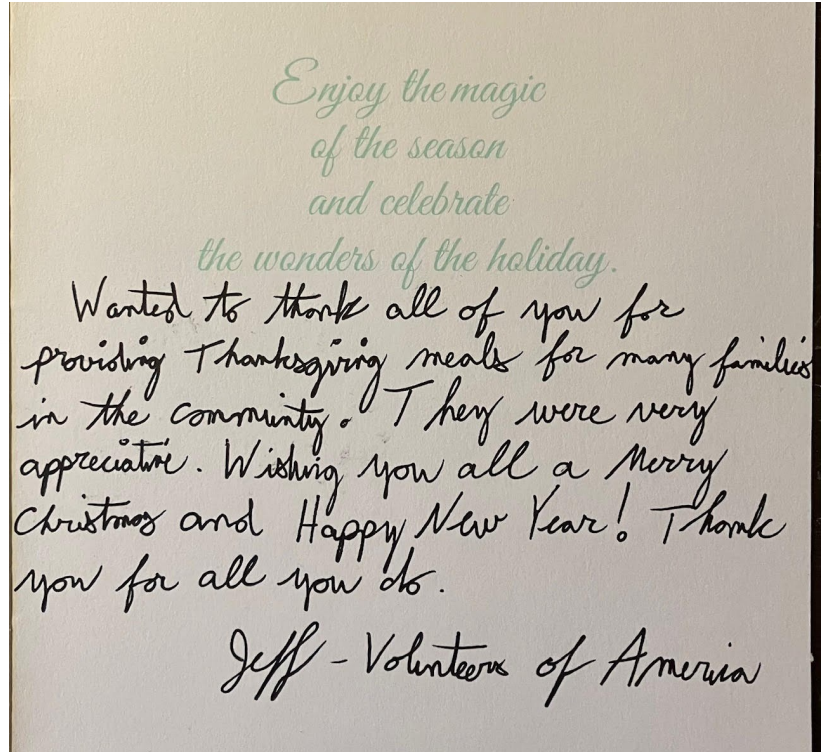 Enjoy the magic
of the season
and celebrate
the wonders of the holiday.
Wanted to thank all of you for
providing Thanksgiving meals for many families
in the comminty. They were very
appreciative. Wishing you all a Merry
Christmas and Happy New Year! Thank
you for all you do.
Jeff - Volunteers of America